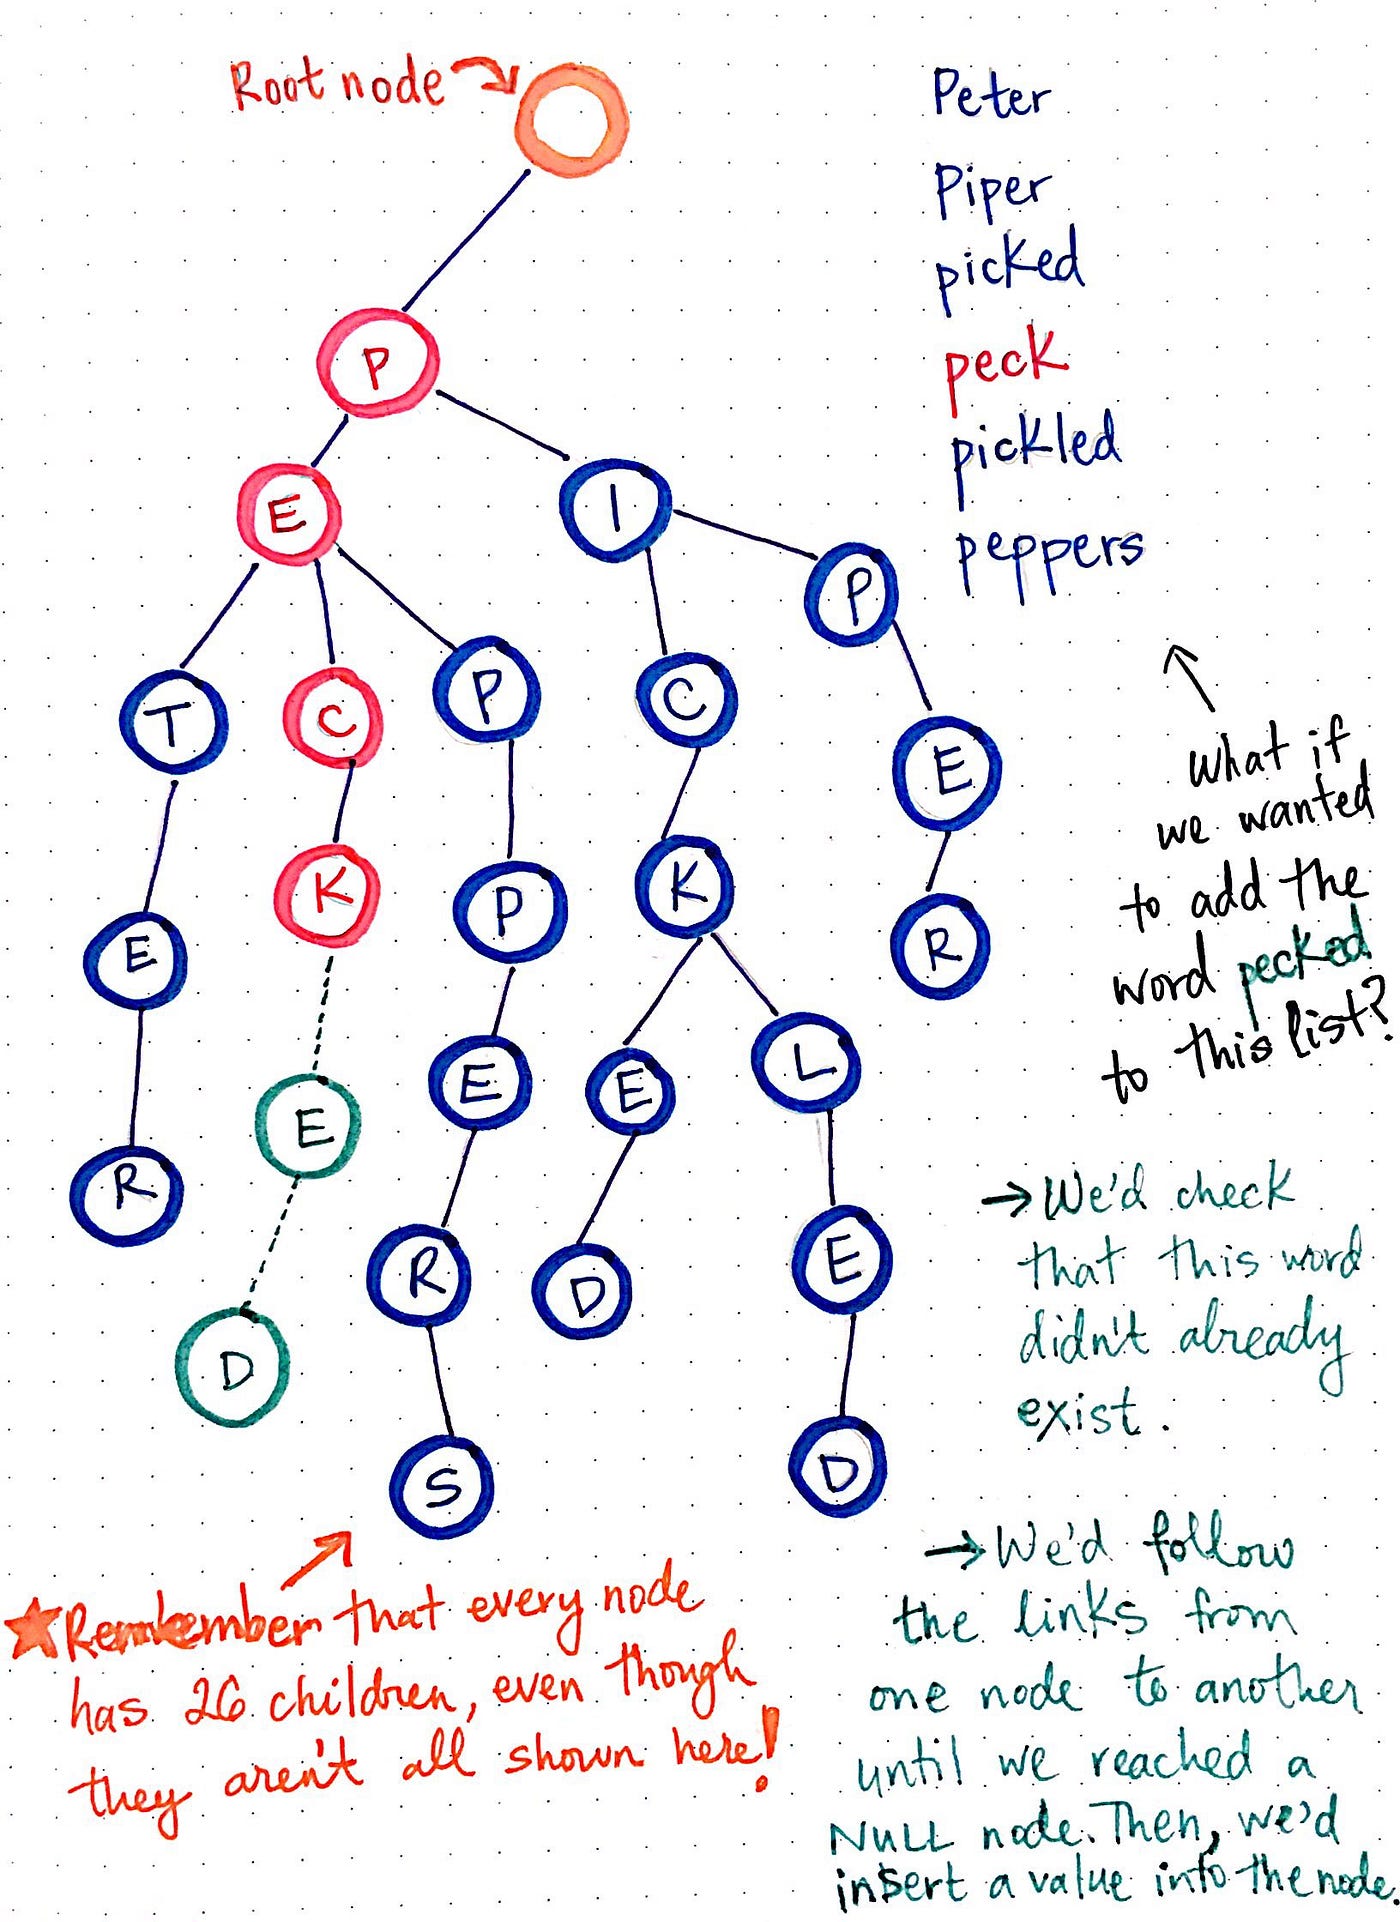 Root node
Peter
Piper
picked
peck
pickled
peppers
P
E
I
P
T
C
P
C
E
E
K
P
K
R
E
E
E
L
R
D
R
D
E
S
D
What if
we wanted
to add the
word pecked
to this list?
→ We'd check
that this word
didn't already
exist.
→ We'd follow
the links from
one node to another
until we reached a
NULL node. Then, we'd
insert a value into the node.
★ Remember that every node
has 26 children, even though
they aren't all shown here!